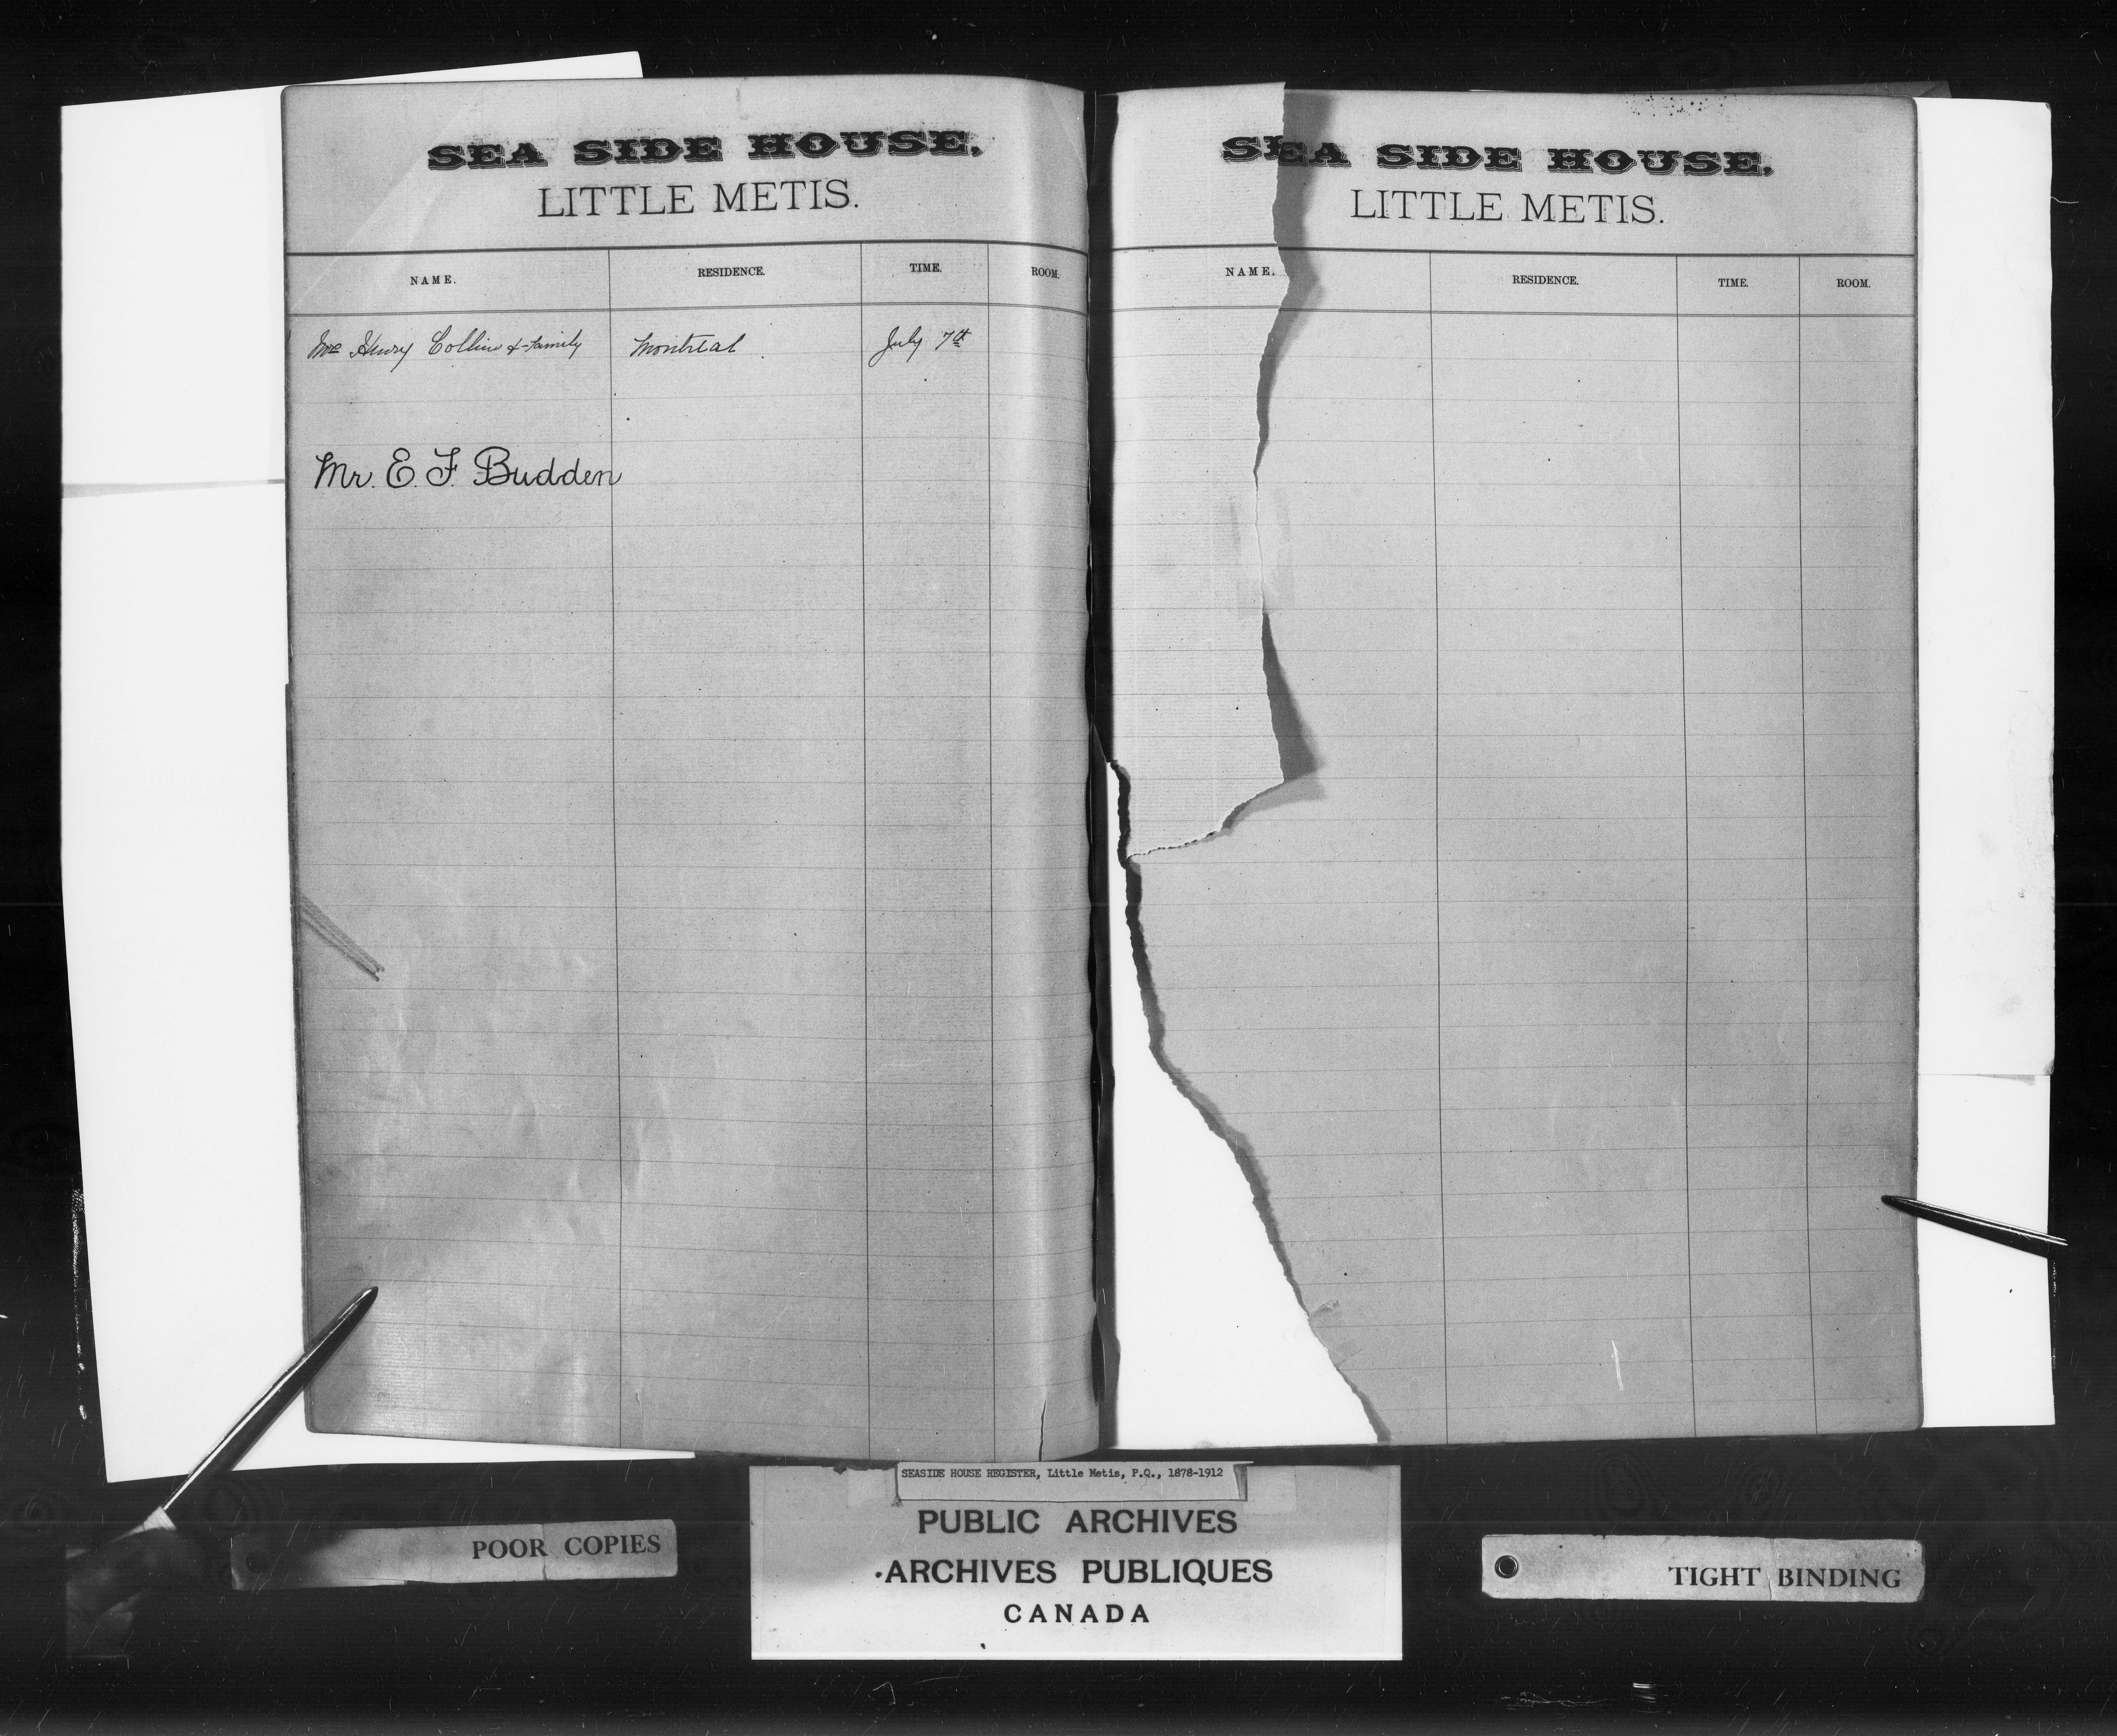 SEA SIDE HOUSE,
LITTLE METIS.
NAME. RESIDENCE. TIME. ROOM.
Henry Collins & family Montreal July 7th
Mr. E. F. Budden
SEA SIDE HOUSE,
LITTLE METIS.
NAME. RESIDENCE. TIME. ROOM.
SEASIDE HOUSE REGISTER, Little Metis, P.Q., 1878-1912
PUBLIC ARCHIVES
ARCHIVES PUBLIQUES
CANADA
POOR COPIES
TIGHT BINDING